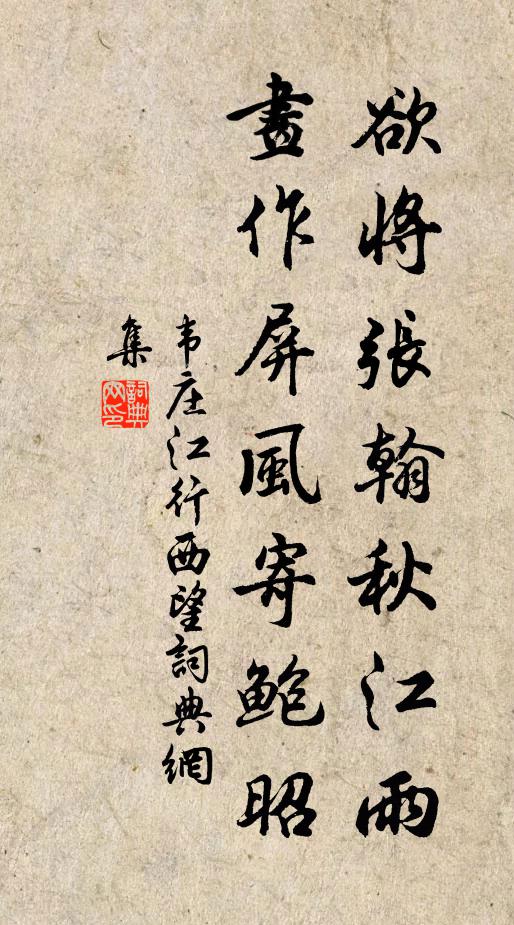 欲將張翰秋江雨
畫作屏風寄鮑昭
韦庄江行西望詞典網
集
詞典網印